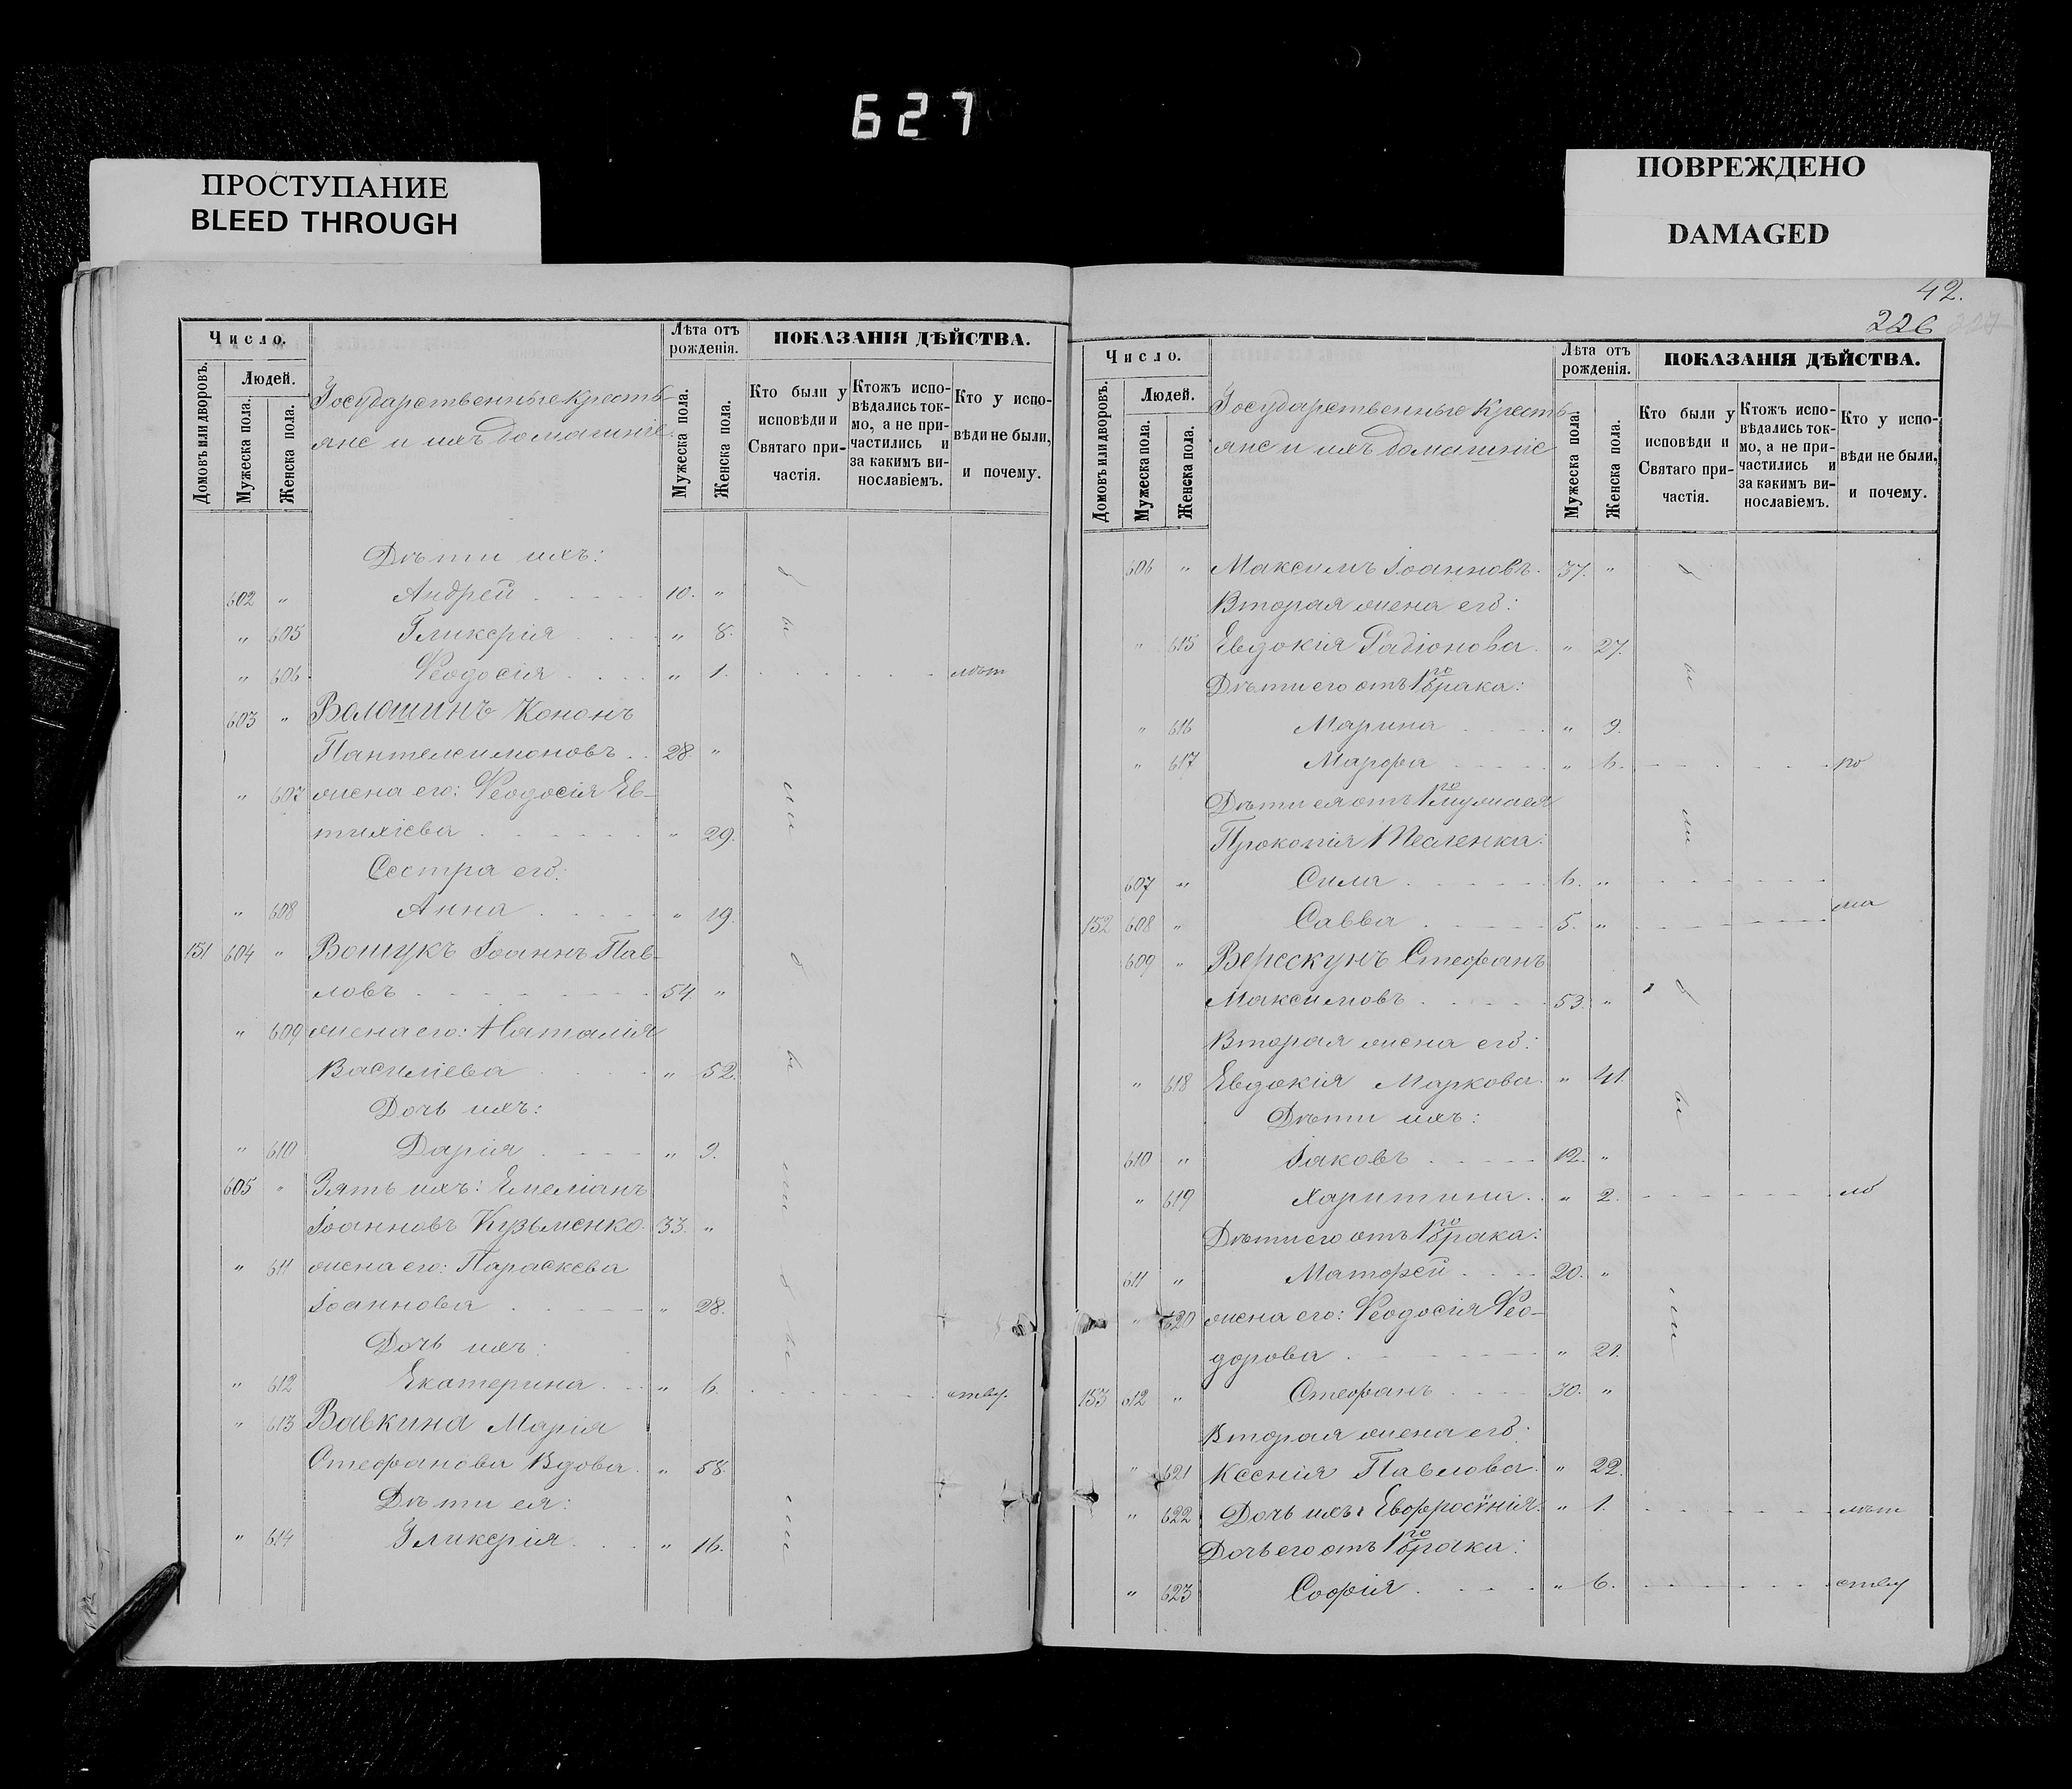 627
ПРОСТУПАНИЕ
BLEED THROUGH
ПОВРЕЖДЕНО
DAMAGED
Число.
Людей.
Домовъ или дворовъ.
Мужеска пола.
Женска пола.
Государственные кресть-
яне и ихъ домашніе
Лѣта отъ рожденія.
Мужеска пола.
Женска пола.
ПОКАЗАНІЯ ДѢЙСТВА.
Кто были у исповѣди и Святаго причастія.
Ктожъ исповѣдались токмо, а не причастились и за какимъ винославіемъ.
Кто у исповѣди не были, и почему.
Дѣти ихъ:
602 " Андрей 10. "
" 605 Гликерія " 8.
" 606 Ѳеодосія " 1. лѣт
603 " Волошинъ Кононъ
Пантелеимоновъ 28. "
" 607 жена его: Ѳеодосія Ев-
тихіева " 29.
Сестра его:
" 608 Анна " 19.
151 604 " Вошукъ Іоаннъ Пав-
ловъ 54. "
" 609 жена его: Наталія
Василіева " 52.
Дочь ихъ:
" 610 Дарія " 9.
605 " Зять ихъ: Емеліанъ
Іоанновъ Кузьменко 33. "
" 611 жена его: Параскева
Іоаннова " 28.
Дочь ихъ:
" 612 Екатерина " 6. ству.
" 613 Вовкина Марія
Стефанова Вдова " 58.
Дѣти ея:
" 614 Гликерія " 16.
были
были
были
42.
226
Число.
Людей.
Домовъ или дворовъ.
Мужеска пола.
Женска пола.
Государственные Кресть-
яне и ихъ домашніе
Лѣта отъ рожденія.
Мужеска пола.
Женска пола.
ПОКАЗАНІЯ ДѢЙСТВА.
Кто были у исповѣди и Святаго причастія.
Ктожъ исповѣдались токмо, а не причастились и за какимъ винославіемъ.
Кто у исповѣди не были, и почему.
606 " Максимъ Іоанновъ 37. "
Вторая жена его:
" 615 Евдокія Радіонова " 27.
Дѣти его отъ 1го брака:
" 616 Марина " 9.
" 617 Марфа " 6. по
Дѣти ея отъ 1го мужа ея
Прокопія Тесленка:
607 " Сила 6. "
152 608 " Савва 5. " ма
609 " Верескунъ Стефанъ
Максимовъ 53. "
Вторая жена его:
" 618 Евдокія Маркова " 41.
Дѣти ихъ:
610 " Іаковъ 12. "
" 619 Харитина " 2. ло
Дѣти его отъ 1го брака:
611 " Матфей 20. "
" 620 жена его: Ѳеодосія Ѳео-
дорова " 21.
153 612 " Стефанъ 30. "
Вторая жена его:
" 621 Ксенія Павлова " 22.
" 622 Дочь ихъ: Евфросѵнія " 1. лѣт
Дочь его отъ 1го брака:
" 623 Софія " 6. ству
были
были